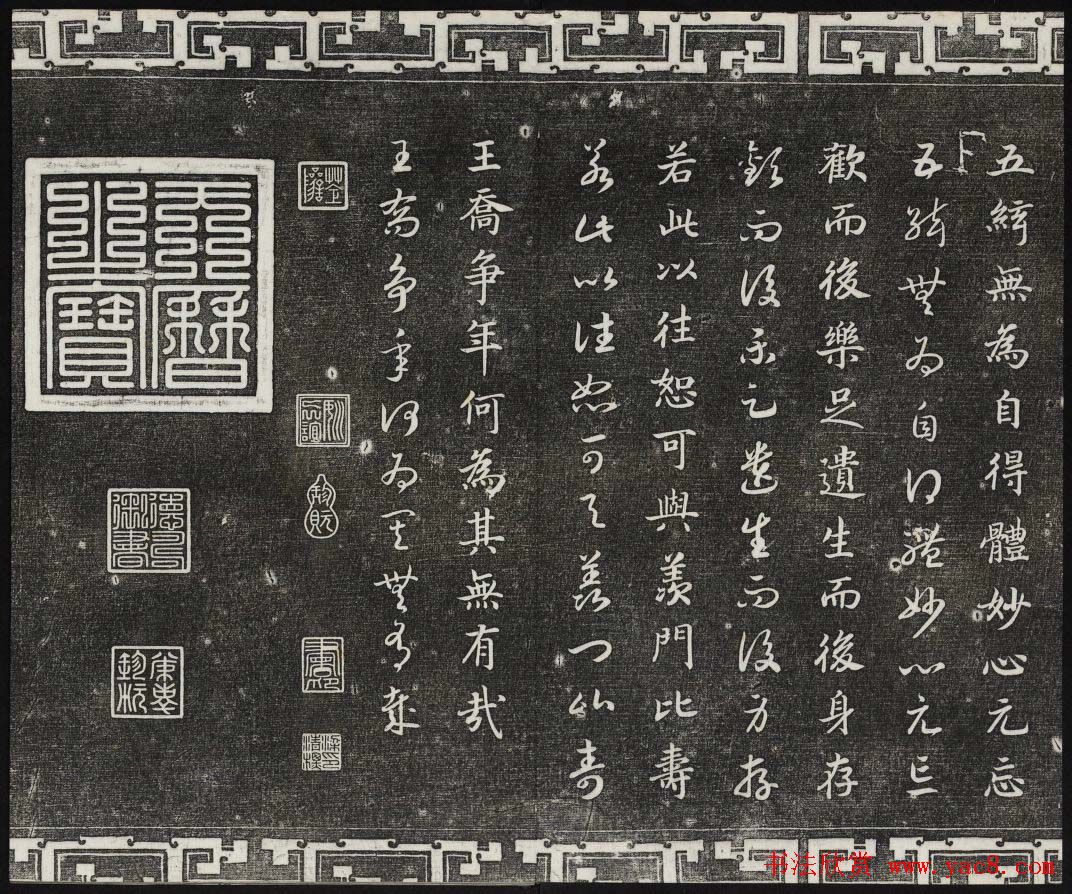 五絃無為自得體妙心元忘
五絃無為自得體妙心元忘
歡而後樂足遺生而後身存
歡而後樂足遺生而後身存
若此以往恕可與羨門比壽
若此以往恕可與羨門比壽
王喬爭年何為其無有哉
王喬爭年何為其無有哉
天曆之寶
书法欣赏 www.yac8.com